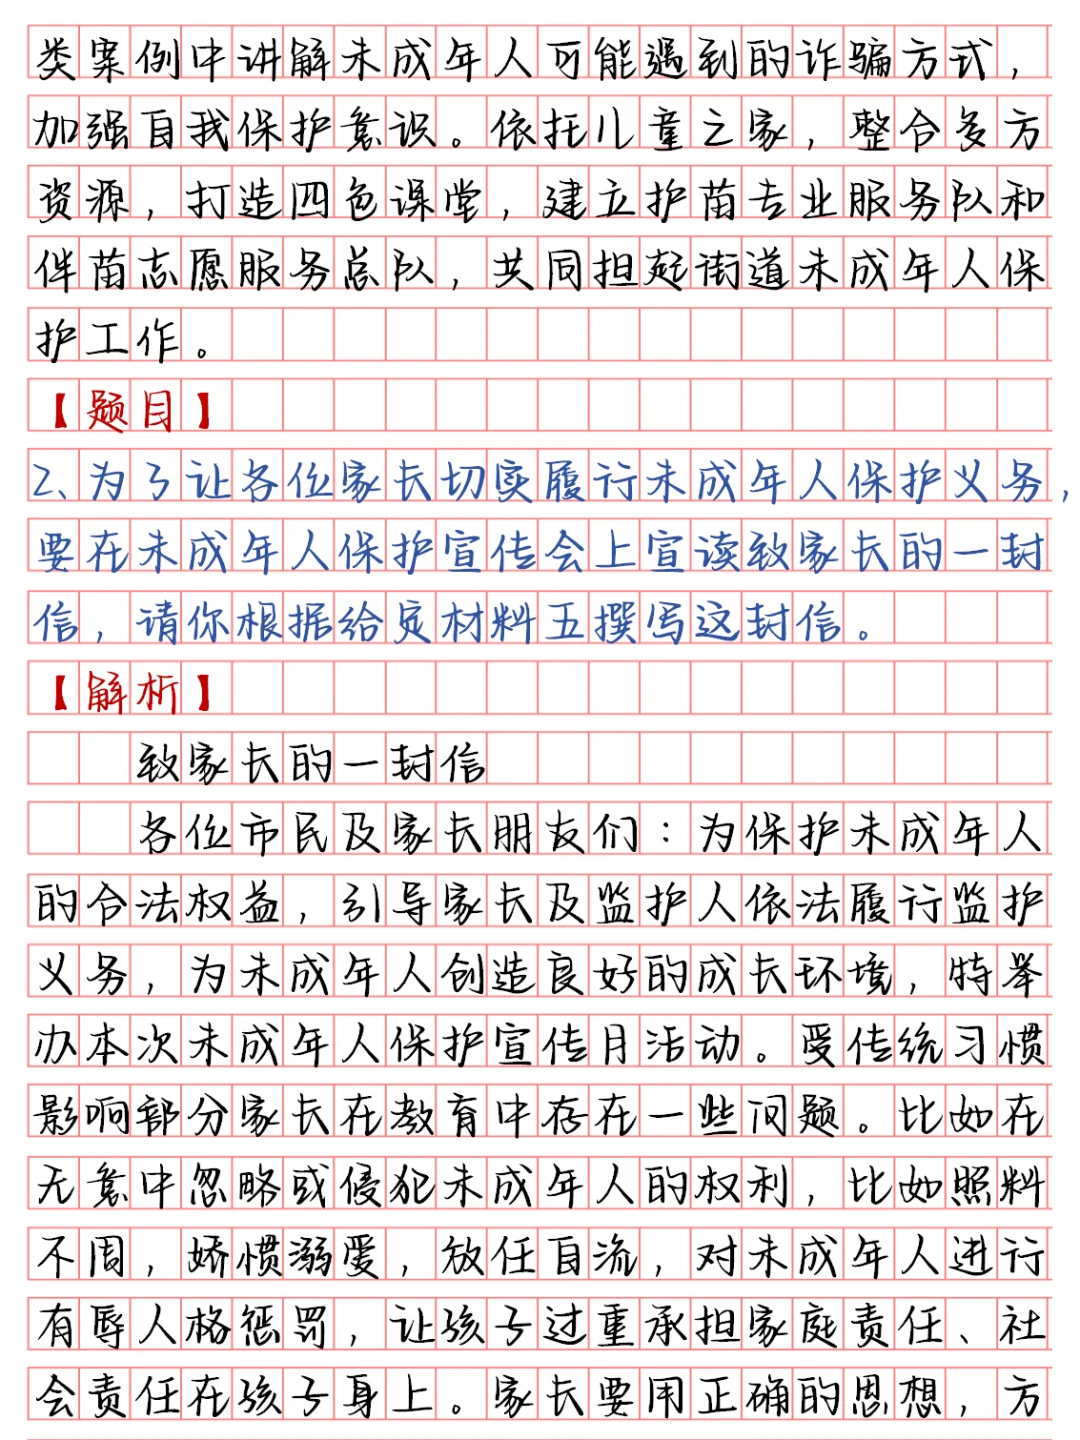 类案例中讲解未成年人可能遇到的诈骗方式，
加强自我保护意识。依托儿童之家，整合多方
资源，打造四色课堂，建立护苗专业服务队和
伴苗志愿服务总队，共同担起街道未成年人保
护工作。
【题目】
2、为了让各位家长切实履行未成年人保护义务，
要在未成年人保护宣传会上宣读致家长的一封
信，请你根据给定材料五撰写这封信。
【解析】
致家长的一封信
各位市民及家长朋友们：为保护未成年人
的合法权益，引导家长及监护人依法履行监护
义务，为未成年人创造良好的成长环境，特举
办本次未成年人保护宣传月活动。受传统习惯
影响部分家长在教育中存在一些问题。比如在
无意中忽略或侵犯未成年人的权利，比如照料
不周，娇惯溺爱，放任自流，对未成年人进行
有辱人格惩罚，让孩子过重承担家庭责任、社
会责任在孩子身上。家长要用正确的思想，方